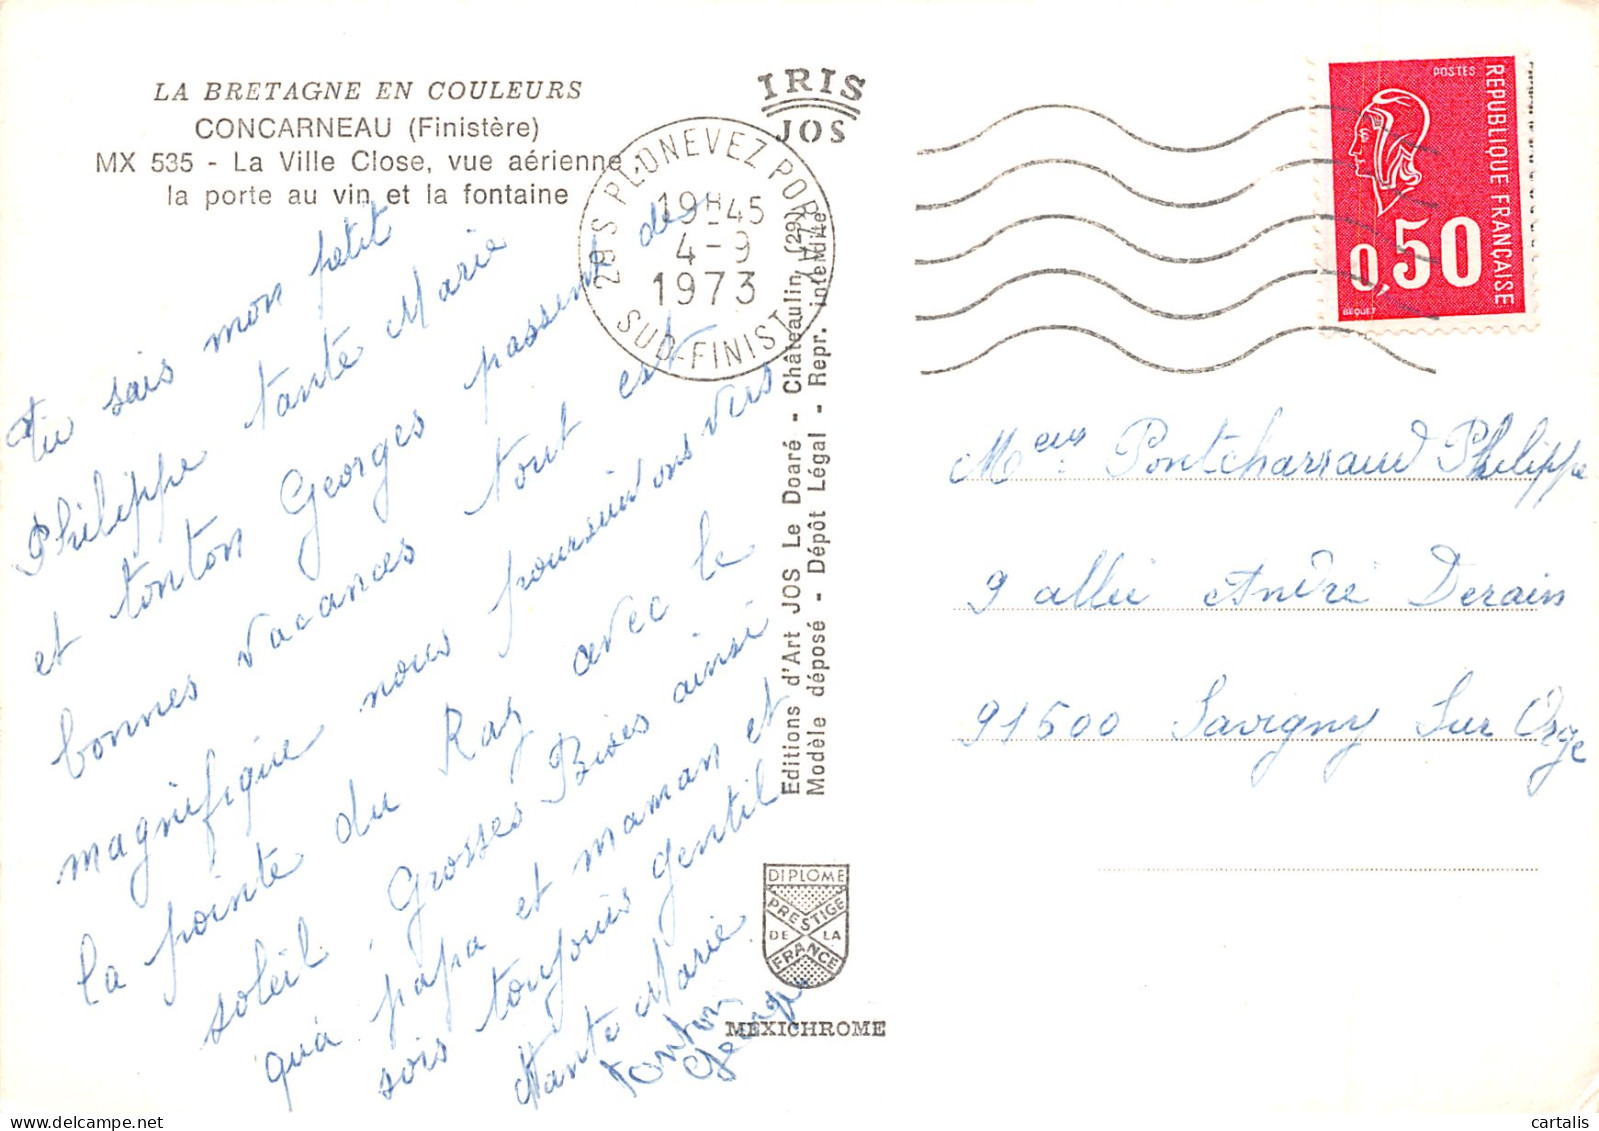 LA BRETAGNE EN COULEURS
CONCARNEAU (Finistère)
MX 535 - La Ville Close, vue aérienne
la porte au vin et la fontaine
IRIS
JOS
29 S PLONEVEZ PORZAY
19H45
4-9
1973
SUD-FINIST.
POSTES
REPUBLIQUE FRANÇAISE
0,50
BEQUET
Tu sais mon petit
Philippe tante Marie
et tonton Georges passent de
bonnes vacances tout est
magnifique nous poursuivons vers
la pointe du Raz avec le
soleil. Grosses Bises ainsi
qu'à papa et maman et
sois toujours gentil
tante Marie
tonton
Georges
Editions d'Art JOS Le Doaré - Châteaulin (29)
Modèle déposé - Dépôt Légal - Repr. interdite
DIPLOME
PRESTIGE
DE LA
FRANCE
MEXICHROME
Meur Pontcharraud Philippe
9 allée André Derain
91600 Savigny Sur Orge
cartalis